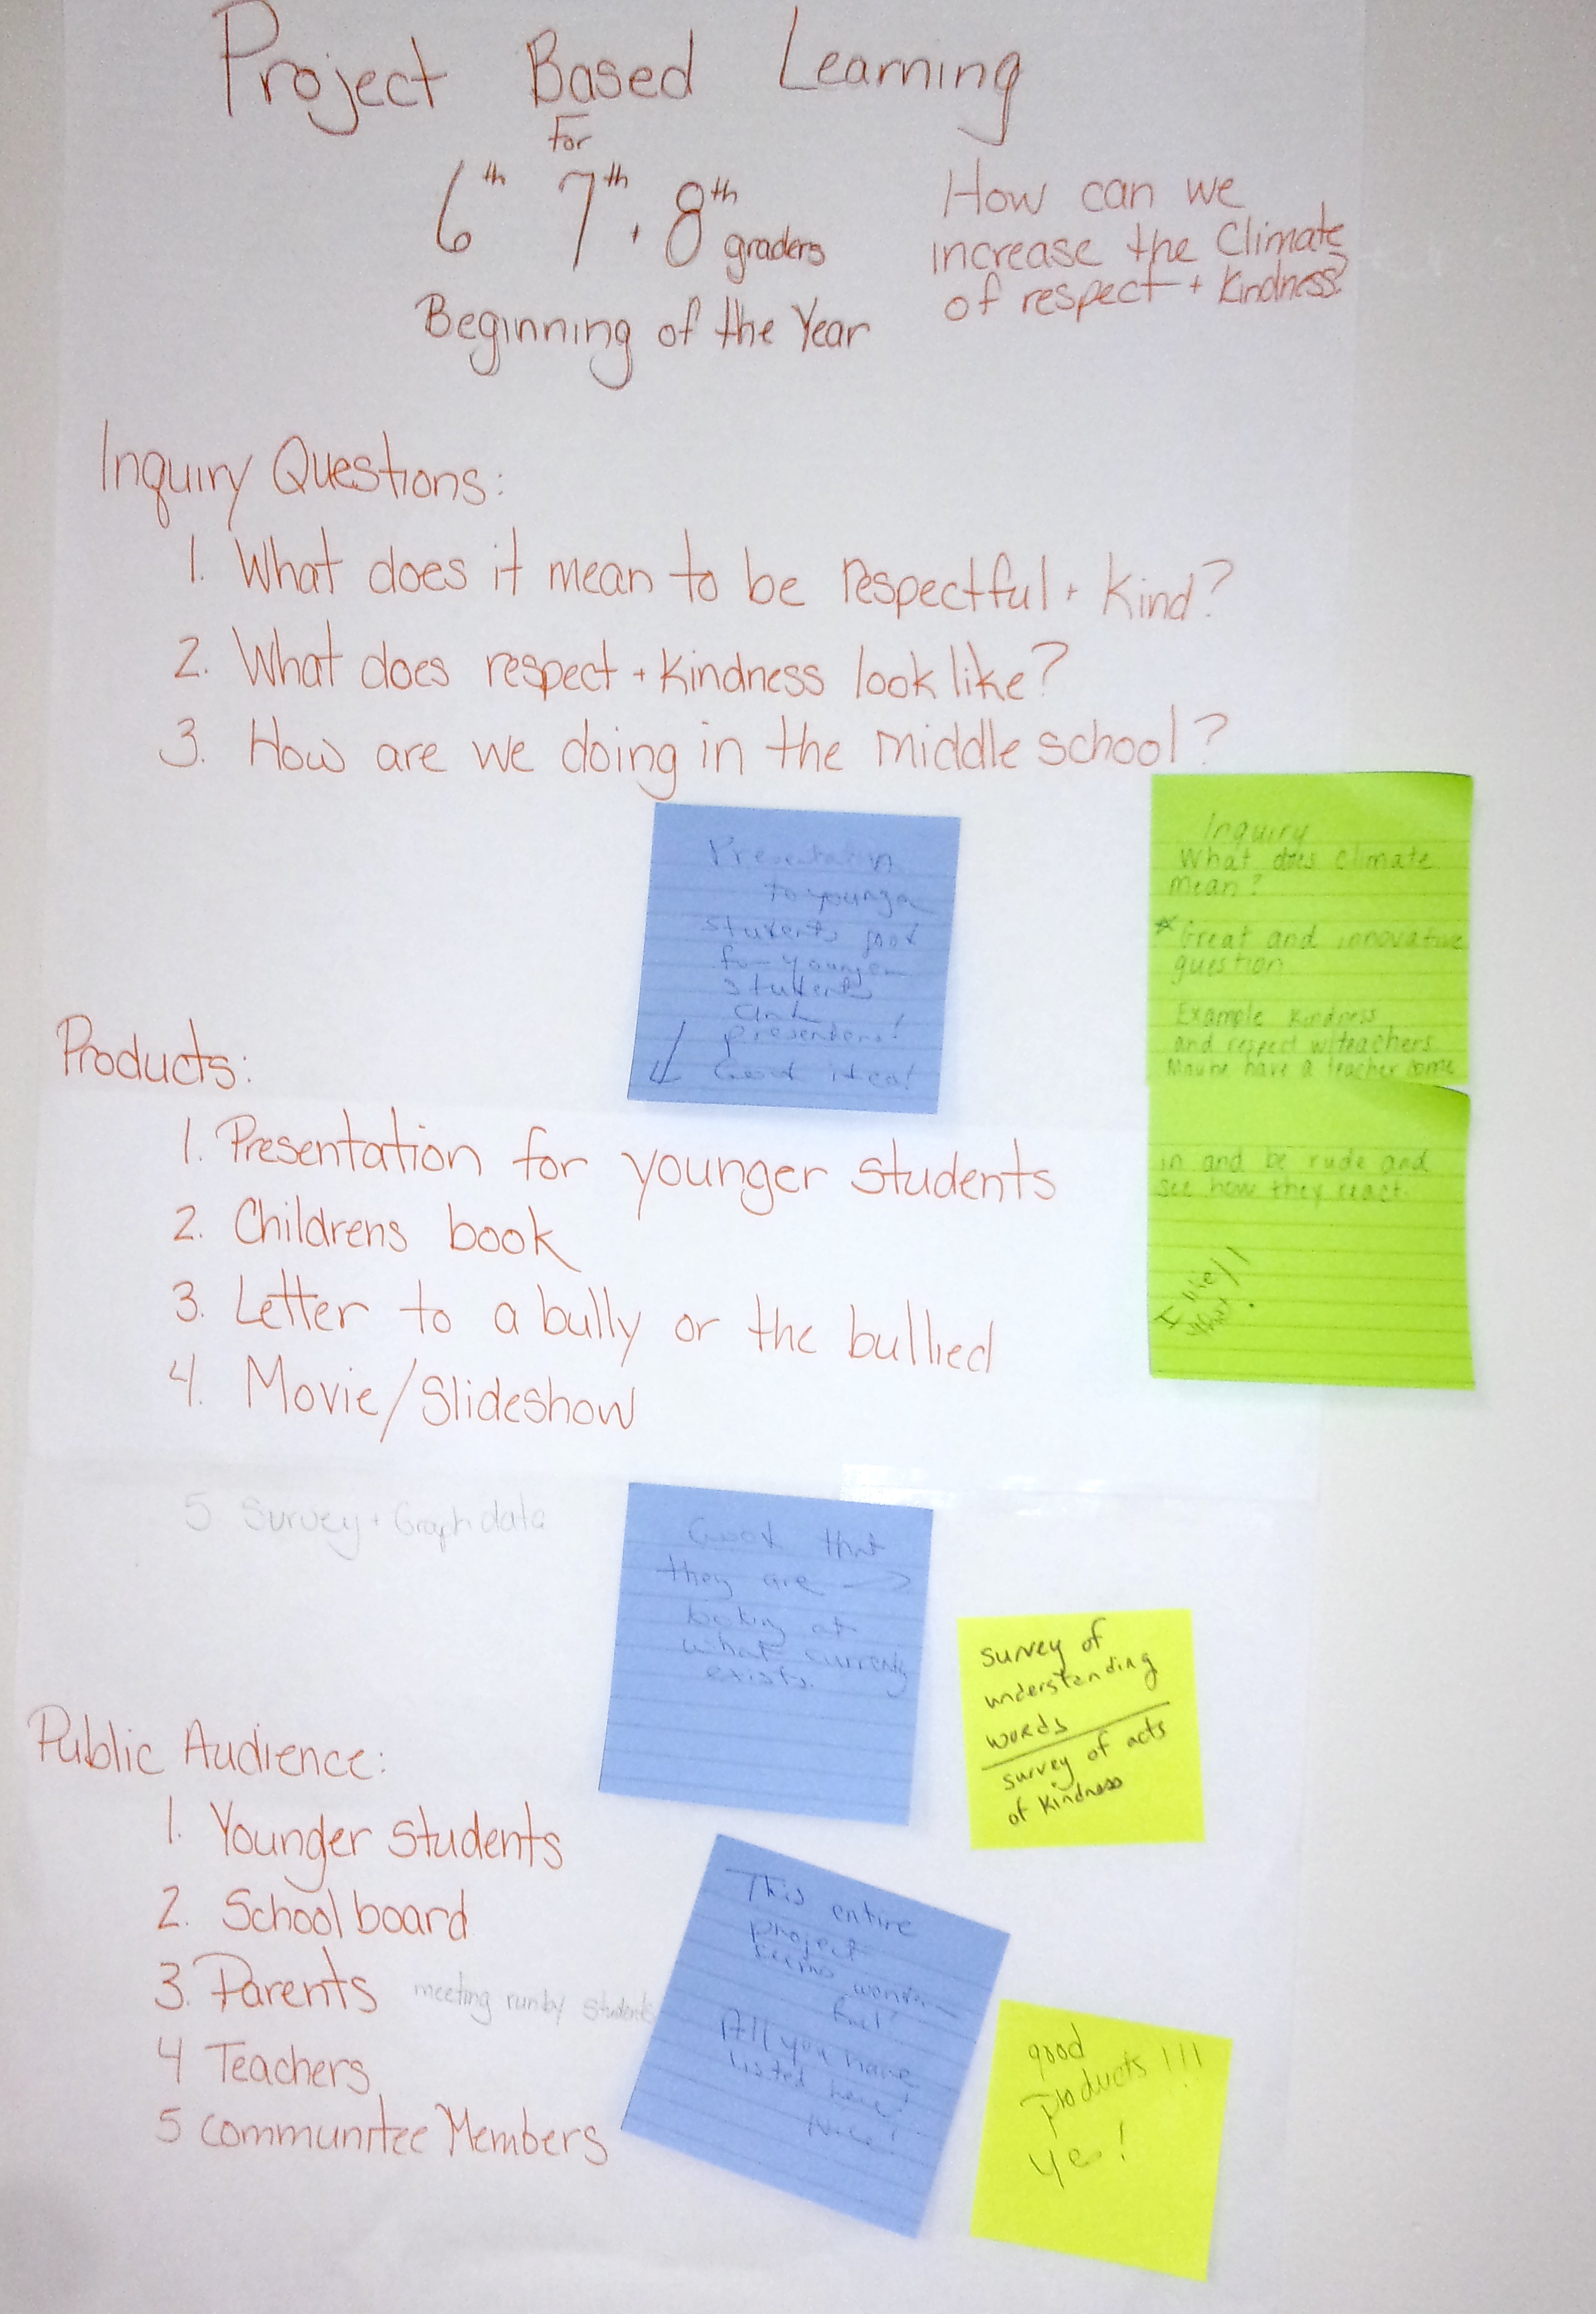 Project Based Learning
For
6th 7th + 8th graders
Beginning of the Year
How can we
increase the Climate
of respect + Kindness?
Inquiry Questions:
1. What does it mean to be respectful + Kind?
2. What does respect + Kindness look like?
3. How are we doing in the middle school?
Presentation
to younger
students good
for younger
students
and
presenters!
Good idea!
Inquiry
What does climate
mean?
*Great and innovative
question
Example kindness
and respect w/teachers
Maybe have a teacher come
in and be rude and
see how they react.
I like
that!!
Products:
1. Presentation for younger students
2. Childrens book
3. Letter to a bully or the bullied
4. Movie/Slideshow
5. Survey + Graph data
Good that
they are
looking at
what currently
exists.
survey of
understanding
words
survey of acts
of kindness
Public Audience:
1. Younger students
2. School board
3. Parents meeting run by students
4 Teachers
5 communitee Members
This entire
project
seems wonder-
ful!
All you have
listed here!
Nice!
good
products!!!
yes!